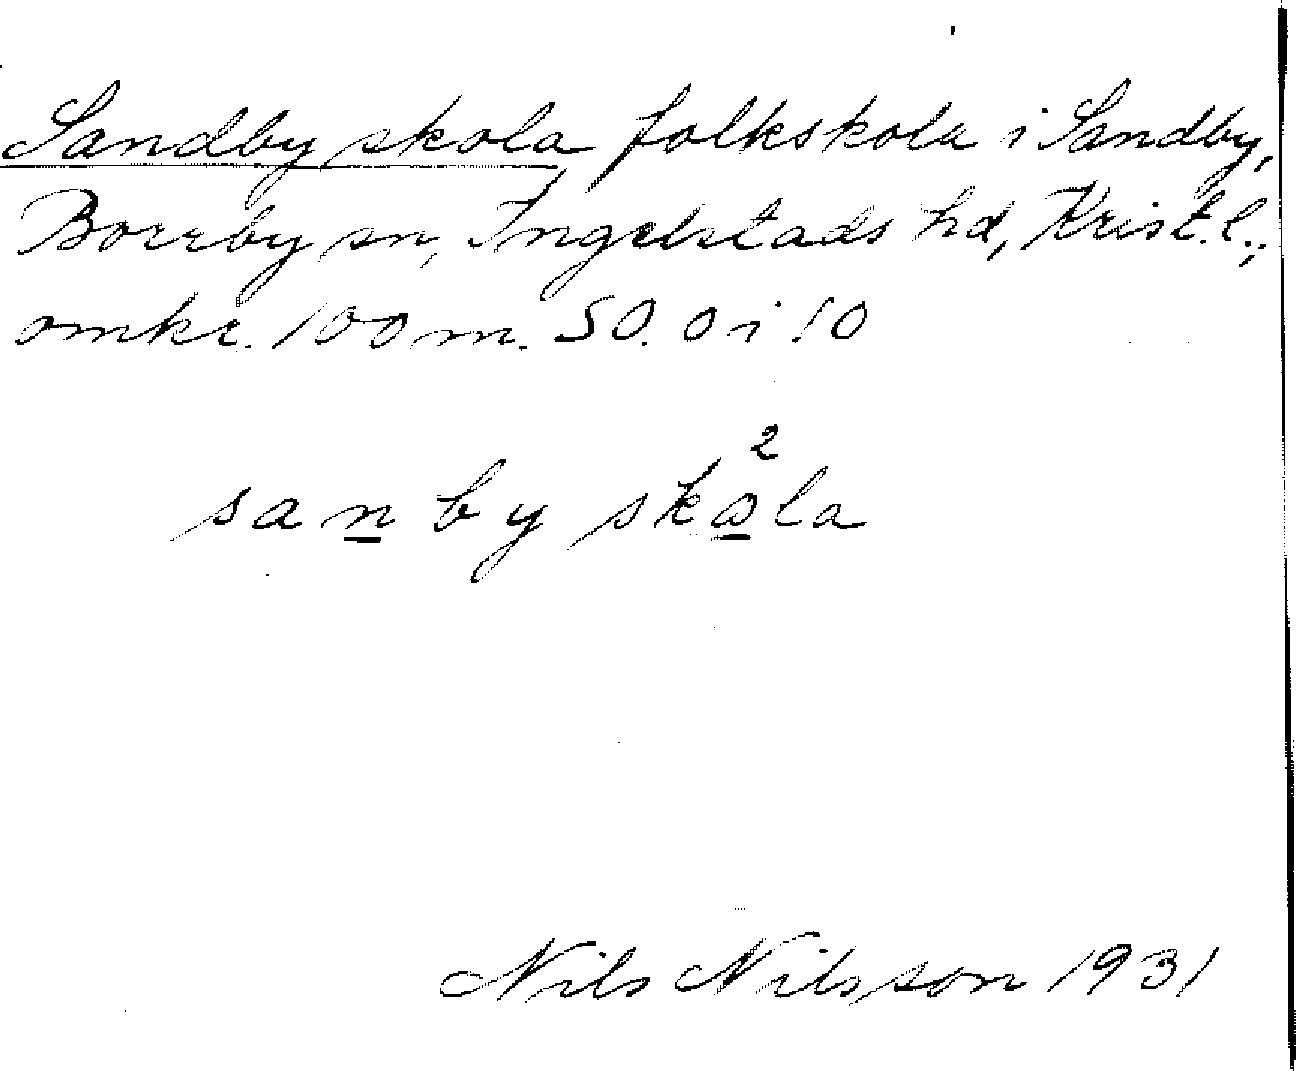 Sandby skola folkskola i Sandby,
Borrby sn, Ingelstads hd, Krist. l.;
omkr. 100 m. SO. o i 10
2
sanby skola
Nils Nilsson 1931